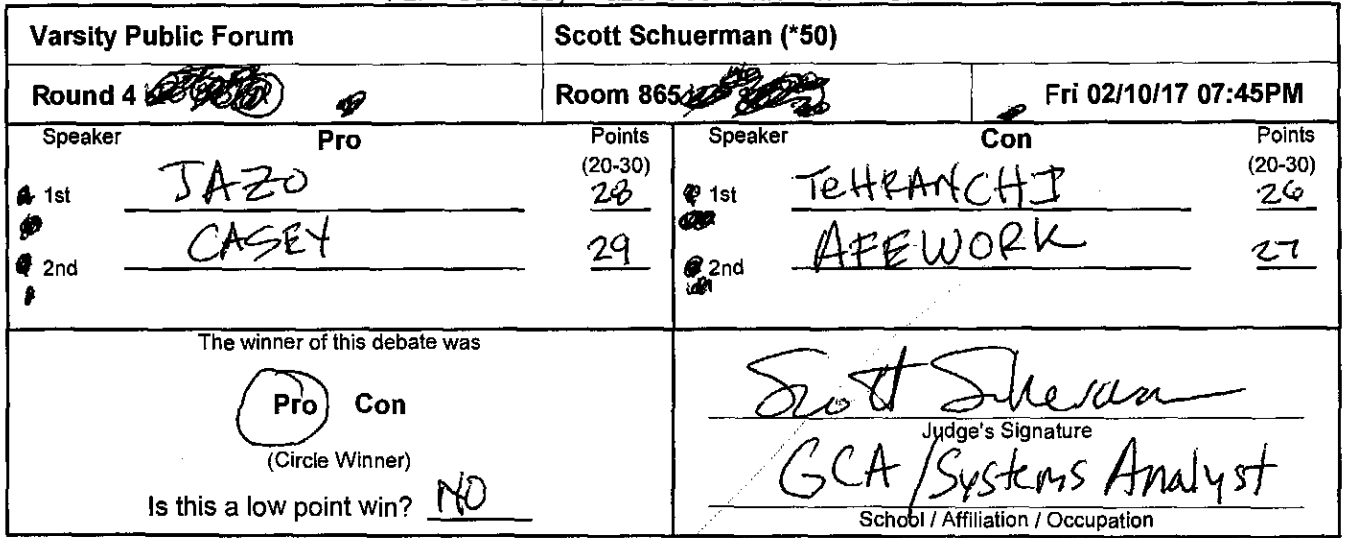 Varsity Public Forum Scott Schuerman (*50)
Round 4 Room 865 Fri 02/10/17 07:45PM
Speaker Pro Points Speaker Con Points
(20-30) (20-30)
1st JAZO 28 1st TEHRANCHI 26
2nd CASEY 29 2nd AFEWORK 27
The winner of this debate was
Pro Con
(Circle Winner)
Is this a low point win? NO
Scott Schuerman
Judge's Signature
GCA/Systems Analyst
School / Affiliation / Occupation